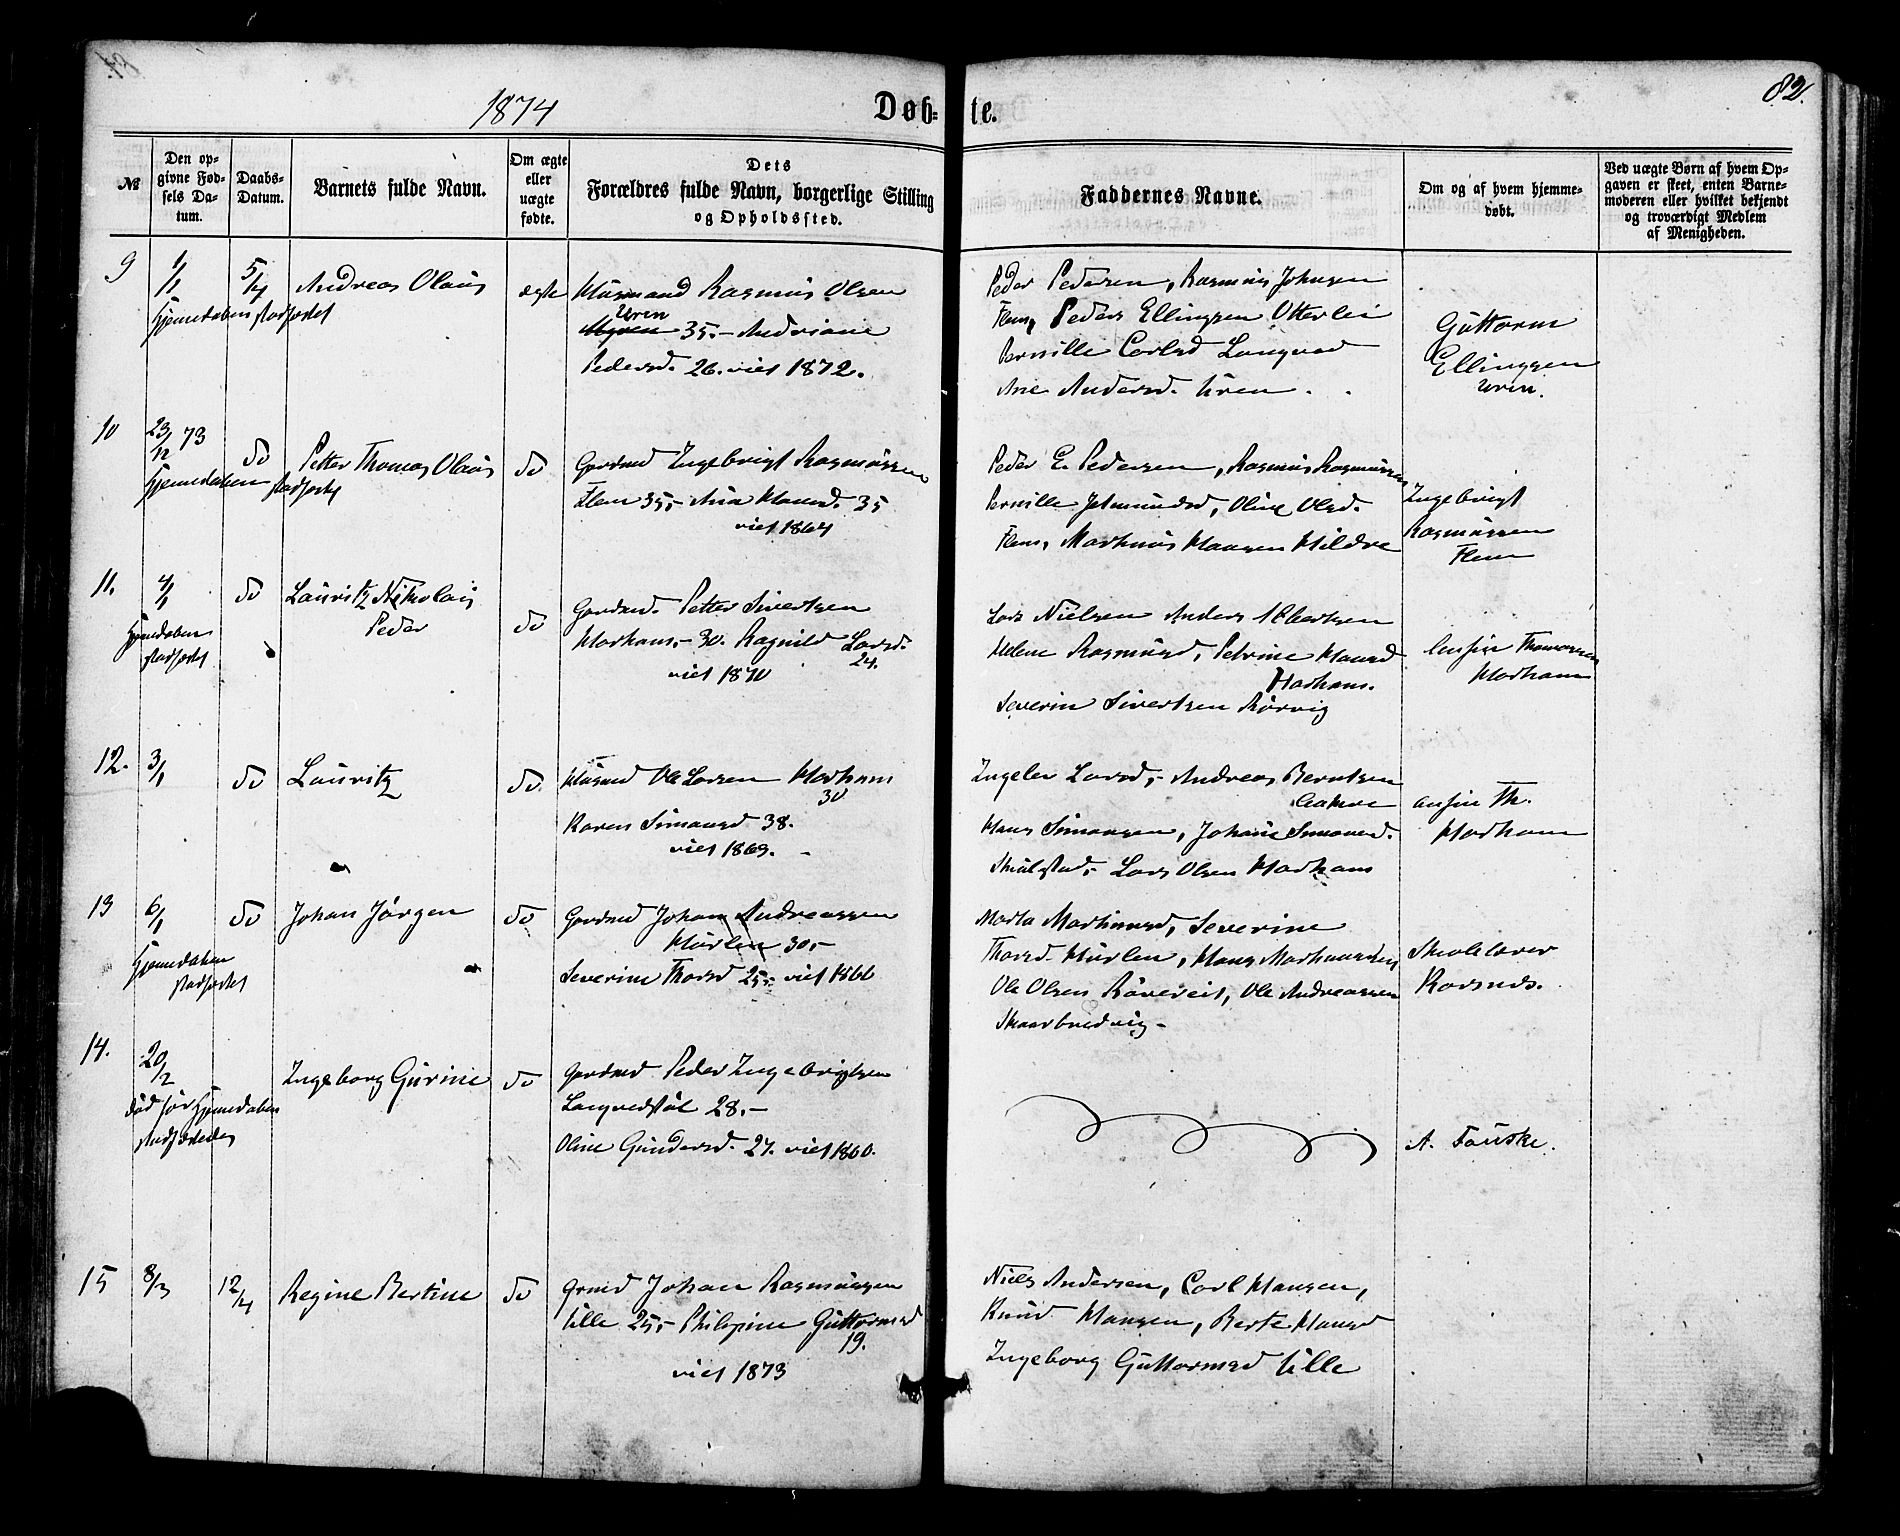 82.
1874
Døb-
te.
№
Den op-
givne Fød-
sels Da-
tum.
Daabs-
Datum.
Barnets fulde Navn.
Om ægte
eller
uægte
fødte.
Dets
Forældres fulde Navn, borgerlige Stilling
og Opholdssted.
Faddernes Navne.
Om og af hvem hjemme-
døbt.
Ved uægte Børn af hvem Op-
gaven er skeet, enten Barne-
moderen eller hvilket bekjendt
og troværdigt Medlem
af Menigheden.
9
1/1
5/4
Andreas Olaus
ægte
Husmand Rasmus Olsen
Uren
35.- Andriane
Pedersd. 26. viet 1872.
Hjemmedaaben stadfæstet
Peder Pedersen, Rasmus Johnsen
Flem, Peder Ellingsen Otterlei
Pernille Carlsd Longvad
Ane Andersd. Uren.
Guttorm
Ellingsen
Uren.
10
23/12 73
do
Petter Thomas Olaus
do
Gardmd Ingebrigt Rasmussen
Flem 35,- Ana Hansd. 35
viet 1864
Hjemmedaaben
stadfæstet
Peder E. Pedersen, Rasmus Rasmussen
Pernille Johnundsd, Oline Olsd.
Flem, Mathias Hansen Hildre
Ingebrigt
Rasmussen
Flem
11.
4/1
do
Lauritz Nikolai
Peder
do
Gardmd. Petter Sivertsen
Harhams,- 30. Ragnild Larsd.
24.
viet 1870
Hjemmedaaben
stadfæstet
Lars Nielsen Anders Albertsen
Helene Rasmusd, Petrine Hansd
Harhams.
Severin Sivertsen Rørvig
Ansin Thomassen
Harham
12.
3/1
do
Lauritz
do
Husmd Ole Larsen Harhams
30
Karen Simonsd 38.
viet 1869.
Ingeler Larsd,- Andreas Berntsen
Hans Simonsen, Johane Simonsd.
Skulstad,- Lars Olsen Harhams
Ansin Th.
Harham
13
6/1
do
Johan Jørgen
do
Gardmd Johan Andreassen
Hurlen 30,-
Severine Thorsd 25,- viet 1866
Hjemmedaaben
stadfæstet
Marta Mathiasd, Severine
Thorsd Hurlen, Hans Mathiassen
Ole Olsen Røvereit, Ole Andreassen
Skaarbredvig-
Skolelærer
Rovsnes.
14.
20/2
Ingeborg Gurine
do
Gardmd Peder Ingebrigtsen
Langvedstøl 28.-
Oline Gundersd. 27. viet 1860.
død før Hjemmedaaben
stadfæstedes
A. Fauske.
15
8/3
12/4
Regine Bertine
do
Grmd Johan Rasmussen
Ulle 25,- Philipine Guttormsd
19.
viet 1873
Niels Andersen, Carl Hansen,
Knud Hansen, Berte Hansd
Ingeborg Guttormsd Ulle